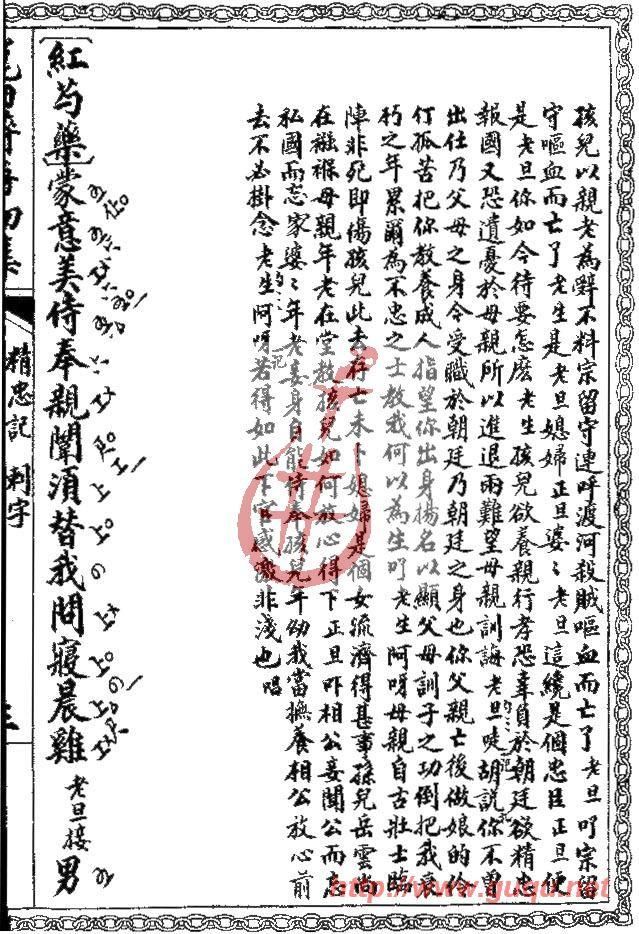 孩兒以親老為辭不料宗留守連呼渡河殺賊嘔血而亡了老旦吖宗留
守嘔血而亡了老生是老旦媳婦正旦婆〻老旦這纔是個忠臣正旦便
是老旦你如今待要怎麽老生孩兒欲養親行孝恐辜負於朝廷欲精忠
報國又恐遺憂於母親所以進退兩難望母親訓誨老旦唗胡說你不曽
出仕乃父母之身今受職於朝廷乃朝廷之身也你父親亡後做娘的伶
仃孤苦把你教養成人指望你出身揚名以顯父母訓子之功倒把我衰
朽之年累爾為不忠之士教我何以為生吖老生阿呀母親自古壯士臨
陣非死即傷孩兒此去存亡未卜媳婦是個女流濟得甚事孫兒岳雲尚
在襁褓母親年老在堂教孩兒如何放心得下正旦吓相公妾聞公而忘
私國而忘家婆〻年老妾身自能侍奉孩兒年幼我當撫養相公放心前
去不必掛念老生阿呀若得如此下官感激非淺也唱
紅芍藥蒙意美侍奉親闈須替我問寢晨雞老旦接男
精忠記 刺字
http://www.guqu.net